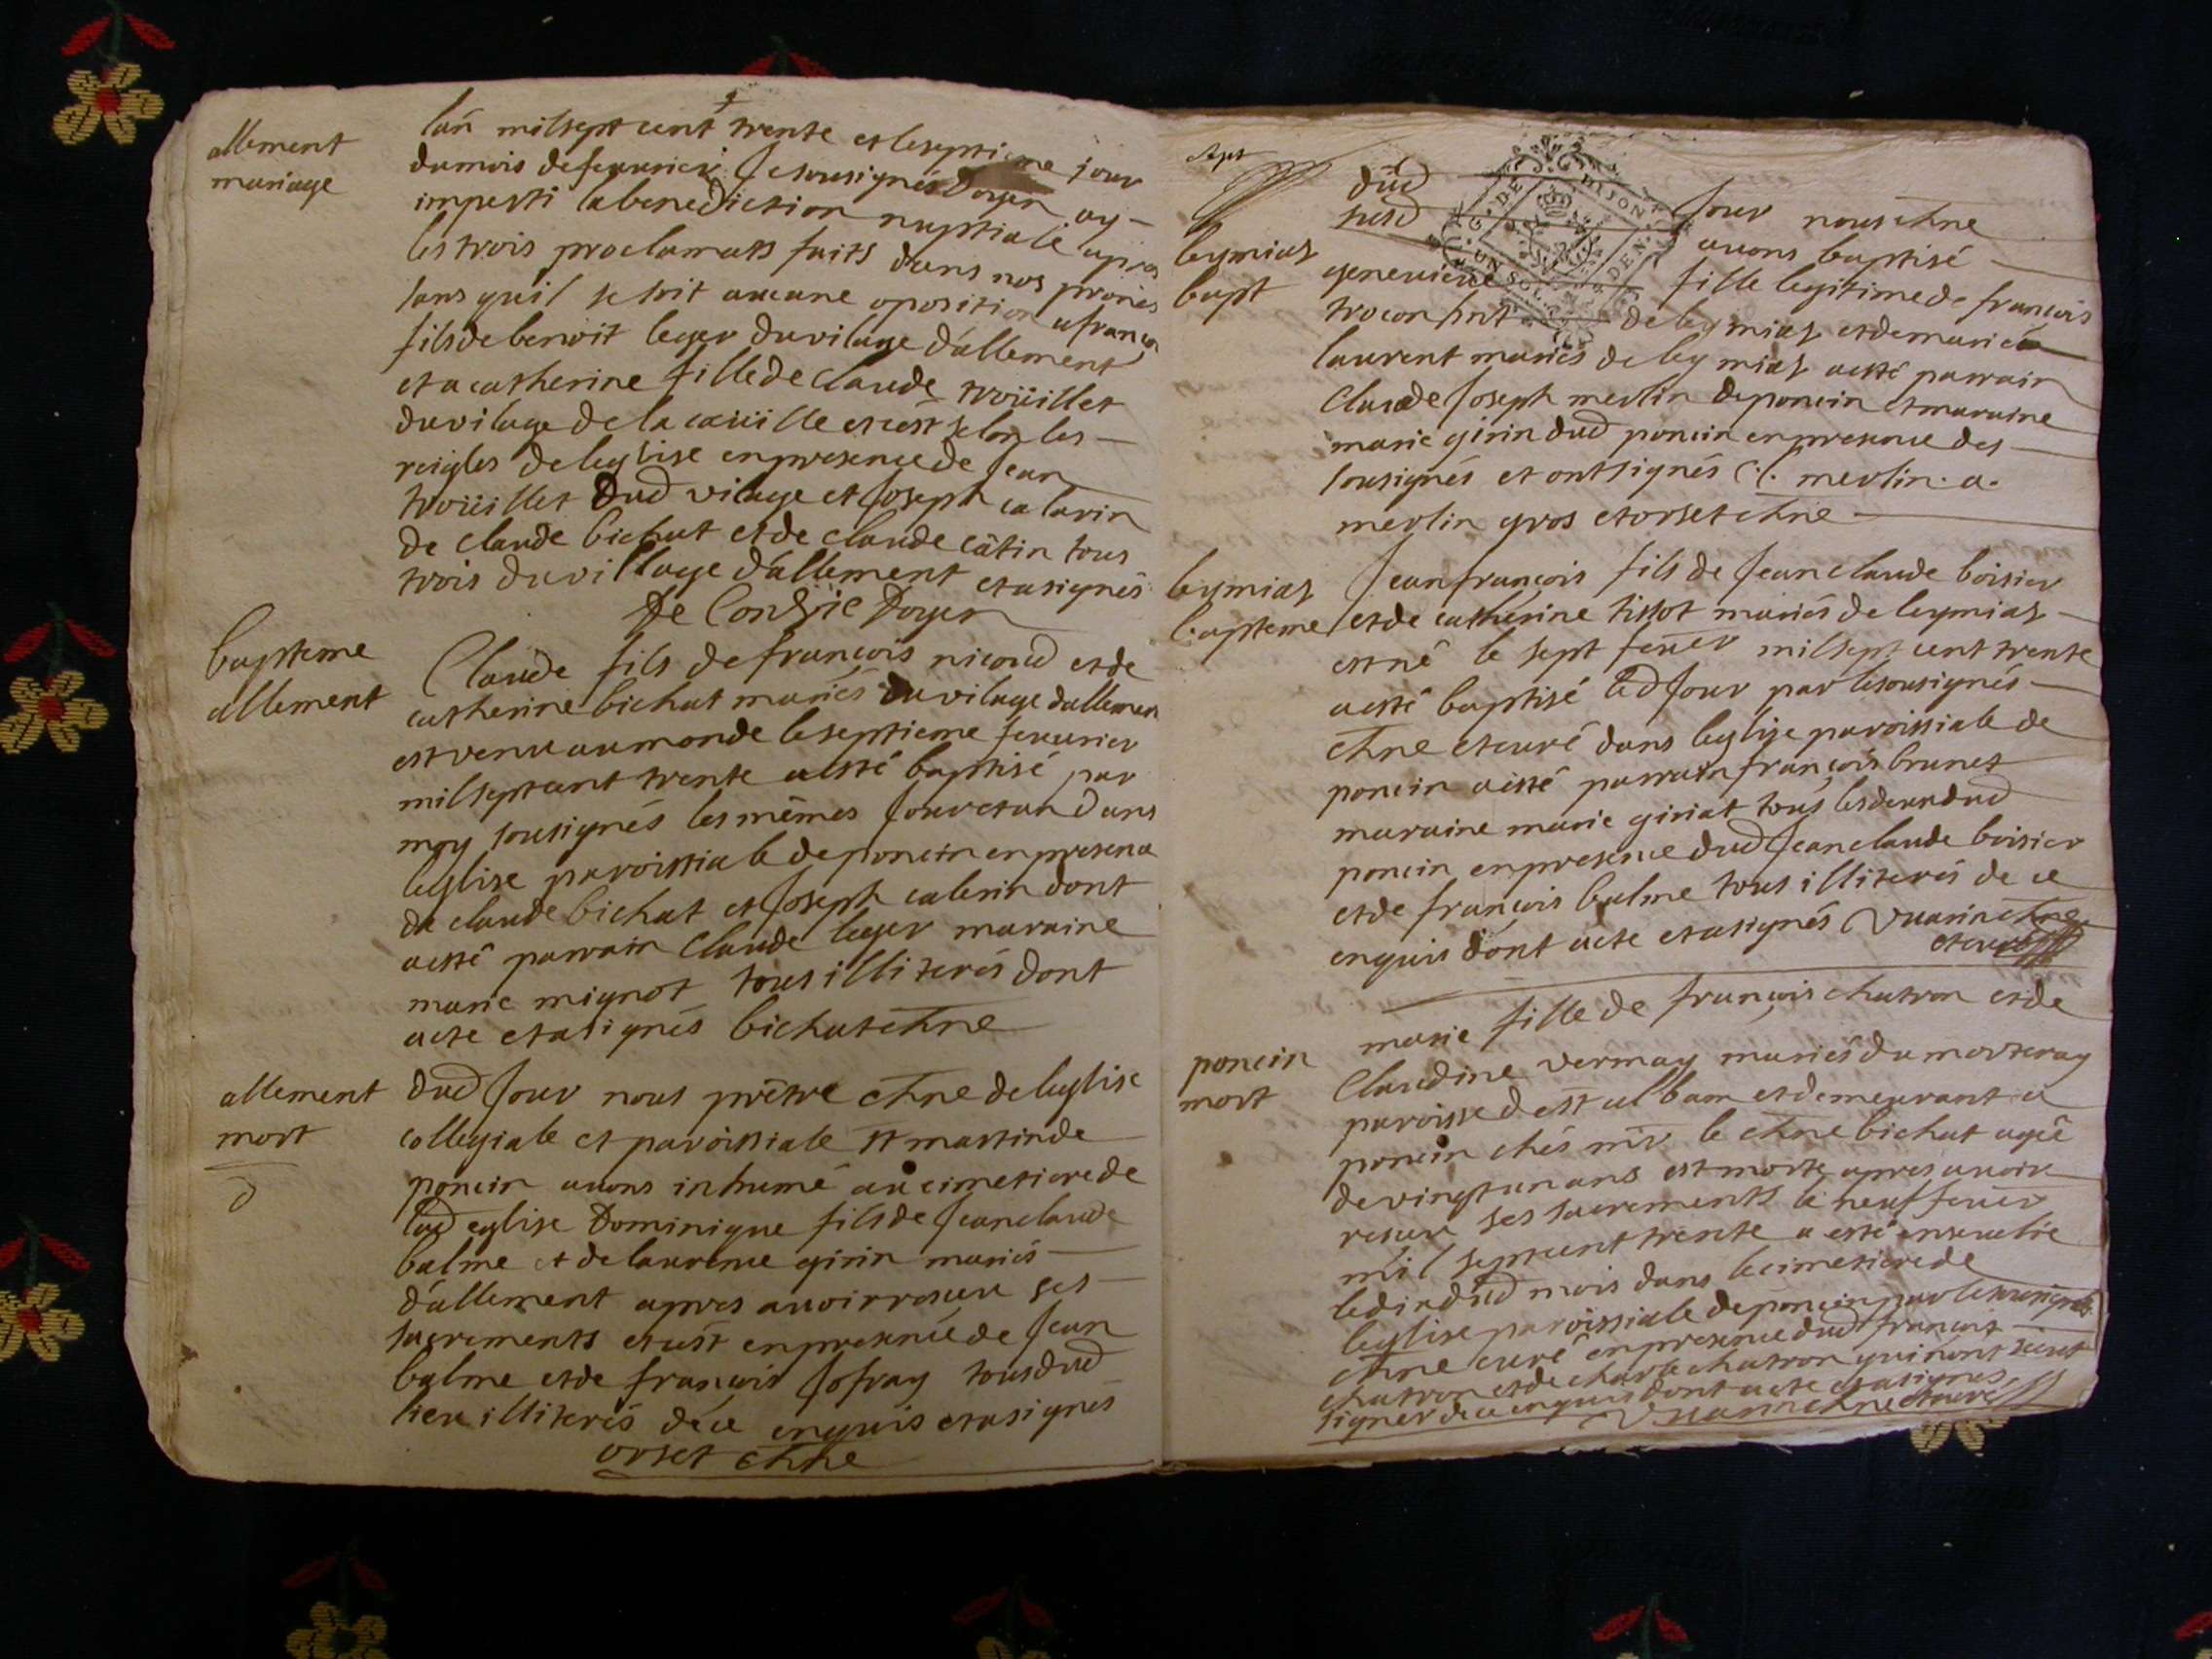 allement
mariage
lan milsept cent trente et leseptieme jour
dumois defeuurier Je sousignés Doyen ay
imparti labenediction nuptiale apres
les trois proclamats faits dans nos prones
sans quil se soit aucune oposition a francois
fils de benoit leger duvilage d'allement
et a catherine fille de claude trouillet
duvilage de la et cest selon les
reigles de leglise enpresence de Jean
trouillet dud vilage et Joseph calarin
de claude bichat et de claude câtin tous
trois du village d'allement et asignés
De Conzie Doyen
bapteme
allement
Claude fils de francois nicoud et de
catherine bichat mariés du vilage dallement
est venu aumonde leseptieme feuurier
milseptcent trente aesté baptisé par
moy sousignés les mêmes Jour et an dans
leglise paroissiale de poncin enpresence
de claude bichat et Joseph calerin dont
aesté parrain Claude leger maraine
marie mignot tous illiterés dont
acte et asignés bichat chne
allement
mort
dud Jour nous prêtre chne de leglise
collegiale et paroissiale st martin de
poncin auons inhumé au cimetiere de
lad eglise Dominique fils de Jean claude
balme et de laurence girin mariés
d'allement apres auoir reseu ses
sacrements et cest enpresence de Jean
balme et de francois Jofray tous dud
lieu illiterés de ce enquis et asignés
orset chne
sept
G. DE DIJON
UN SOL DEN
leymiat
bapt
dud
susd Jour nous chne
auons baptisé
geneuieve fille legitime de francois
de leymiat et de marie
laurent mariés de leymiat aesté parrain
Claude Joseph merlin de poncin et maraine
marie girin dud poncin enpresence des
sousignés et ont signés C. J. merlin. a.
merlin gros et orset chne
leymiat
bapteme
Jean francois fils de Jean claude boisier
et de catherine tissot mariés de leymiat
est né le sept feuer milsept cent trente
aesté baptisé led Jour par lesousignés
chne et curé dans leglise paroissiale de
poncin aesté parrain francois brunet
maraine marie giriat tous lesdeux dud
poncin enpresence dud Jean claude boisier
et de francois balme tous illiterés de ce
enquis dont acte et asignés Vuarin chne
et curé
poncin
mort
marie fille de francois chatron et de
Claudine vermay mariés du morteray
paroisse d'est alban et demeurant a
poncin chés mr le chne bichat agée
de vingt un ans est morte apres auoir
reseu ses sacrements le neuf feuer
mil septcent trente a esté enseuelie
ledix dud mois dans le cimetiere de
leglise paroissiale de poncin par lesousignés
chne curé enpresence dud francois
chatron et de charle chatron qui nont sceut
signer de ce enquis dont acte et asignés
Vuarin chne et curé